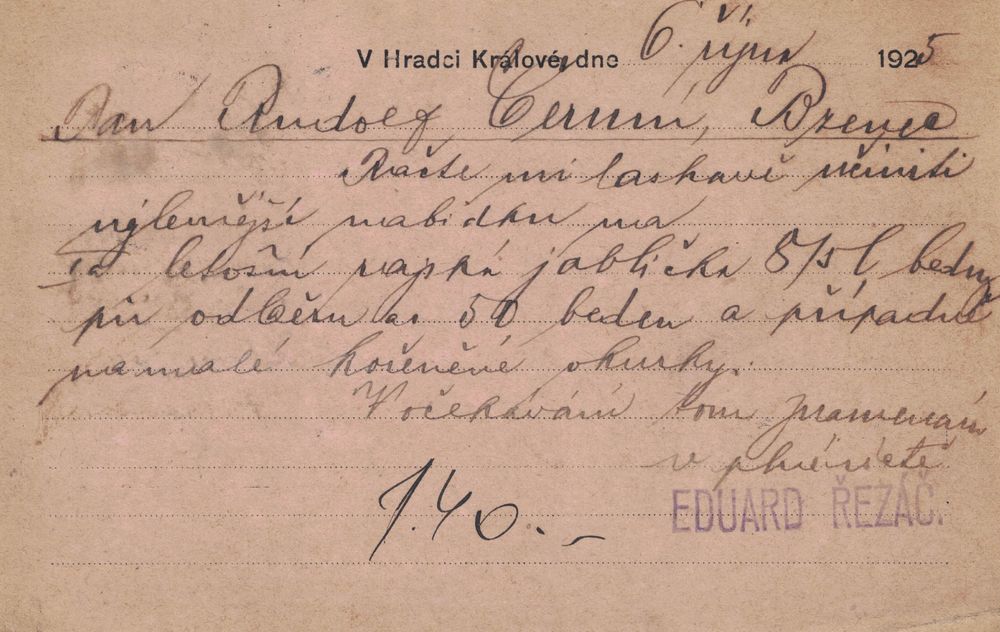 V Hradci Králové, dne 6. října 1925
Pan Rudolf Černý, Bzenec
Račte mi laskavě učiniti
nejlevnější nabídku na
Ia letošní rajská jablíčka 5/5 l bedny
při odběru as 50 beden a případně
na malé kořeněné okurky.
V očekávání tom znamenám
v plné úctě
EDUARD ŘEZÁČ.
1.40.-